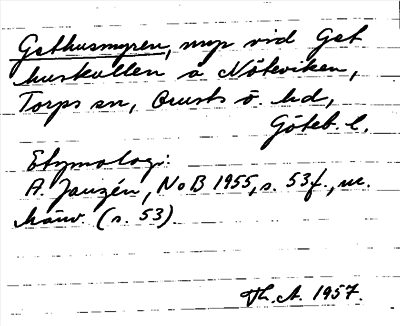 Gethusmyren, myr vid Get
huskullen a Nöteviken,
Torps sn, Orusts ö. hd,
Göteb. l.
Etymologi:
A. Janzén, NoB 1955, s. 53f., m.
hänv. (s. 53)
Th. A. 1957.